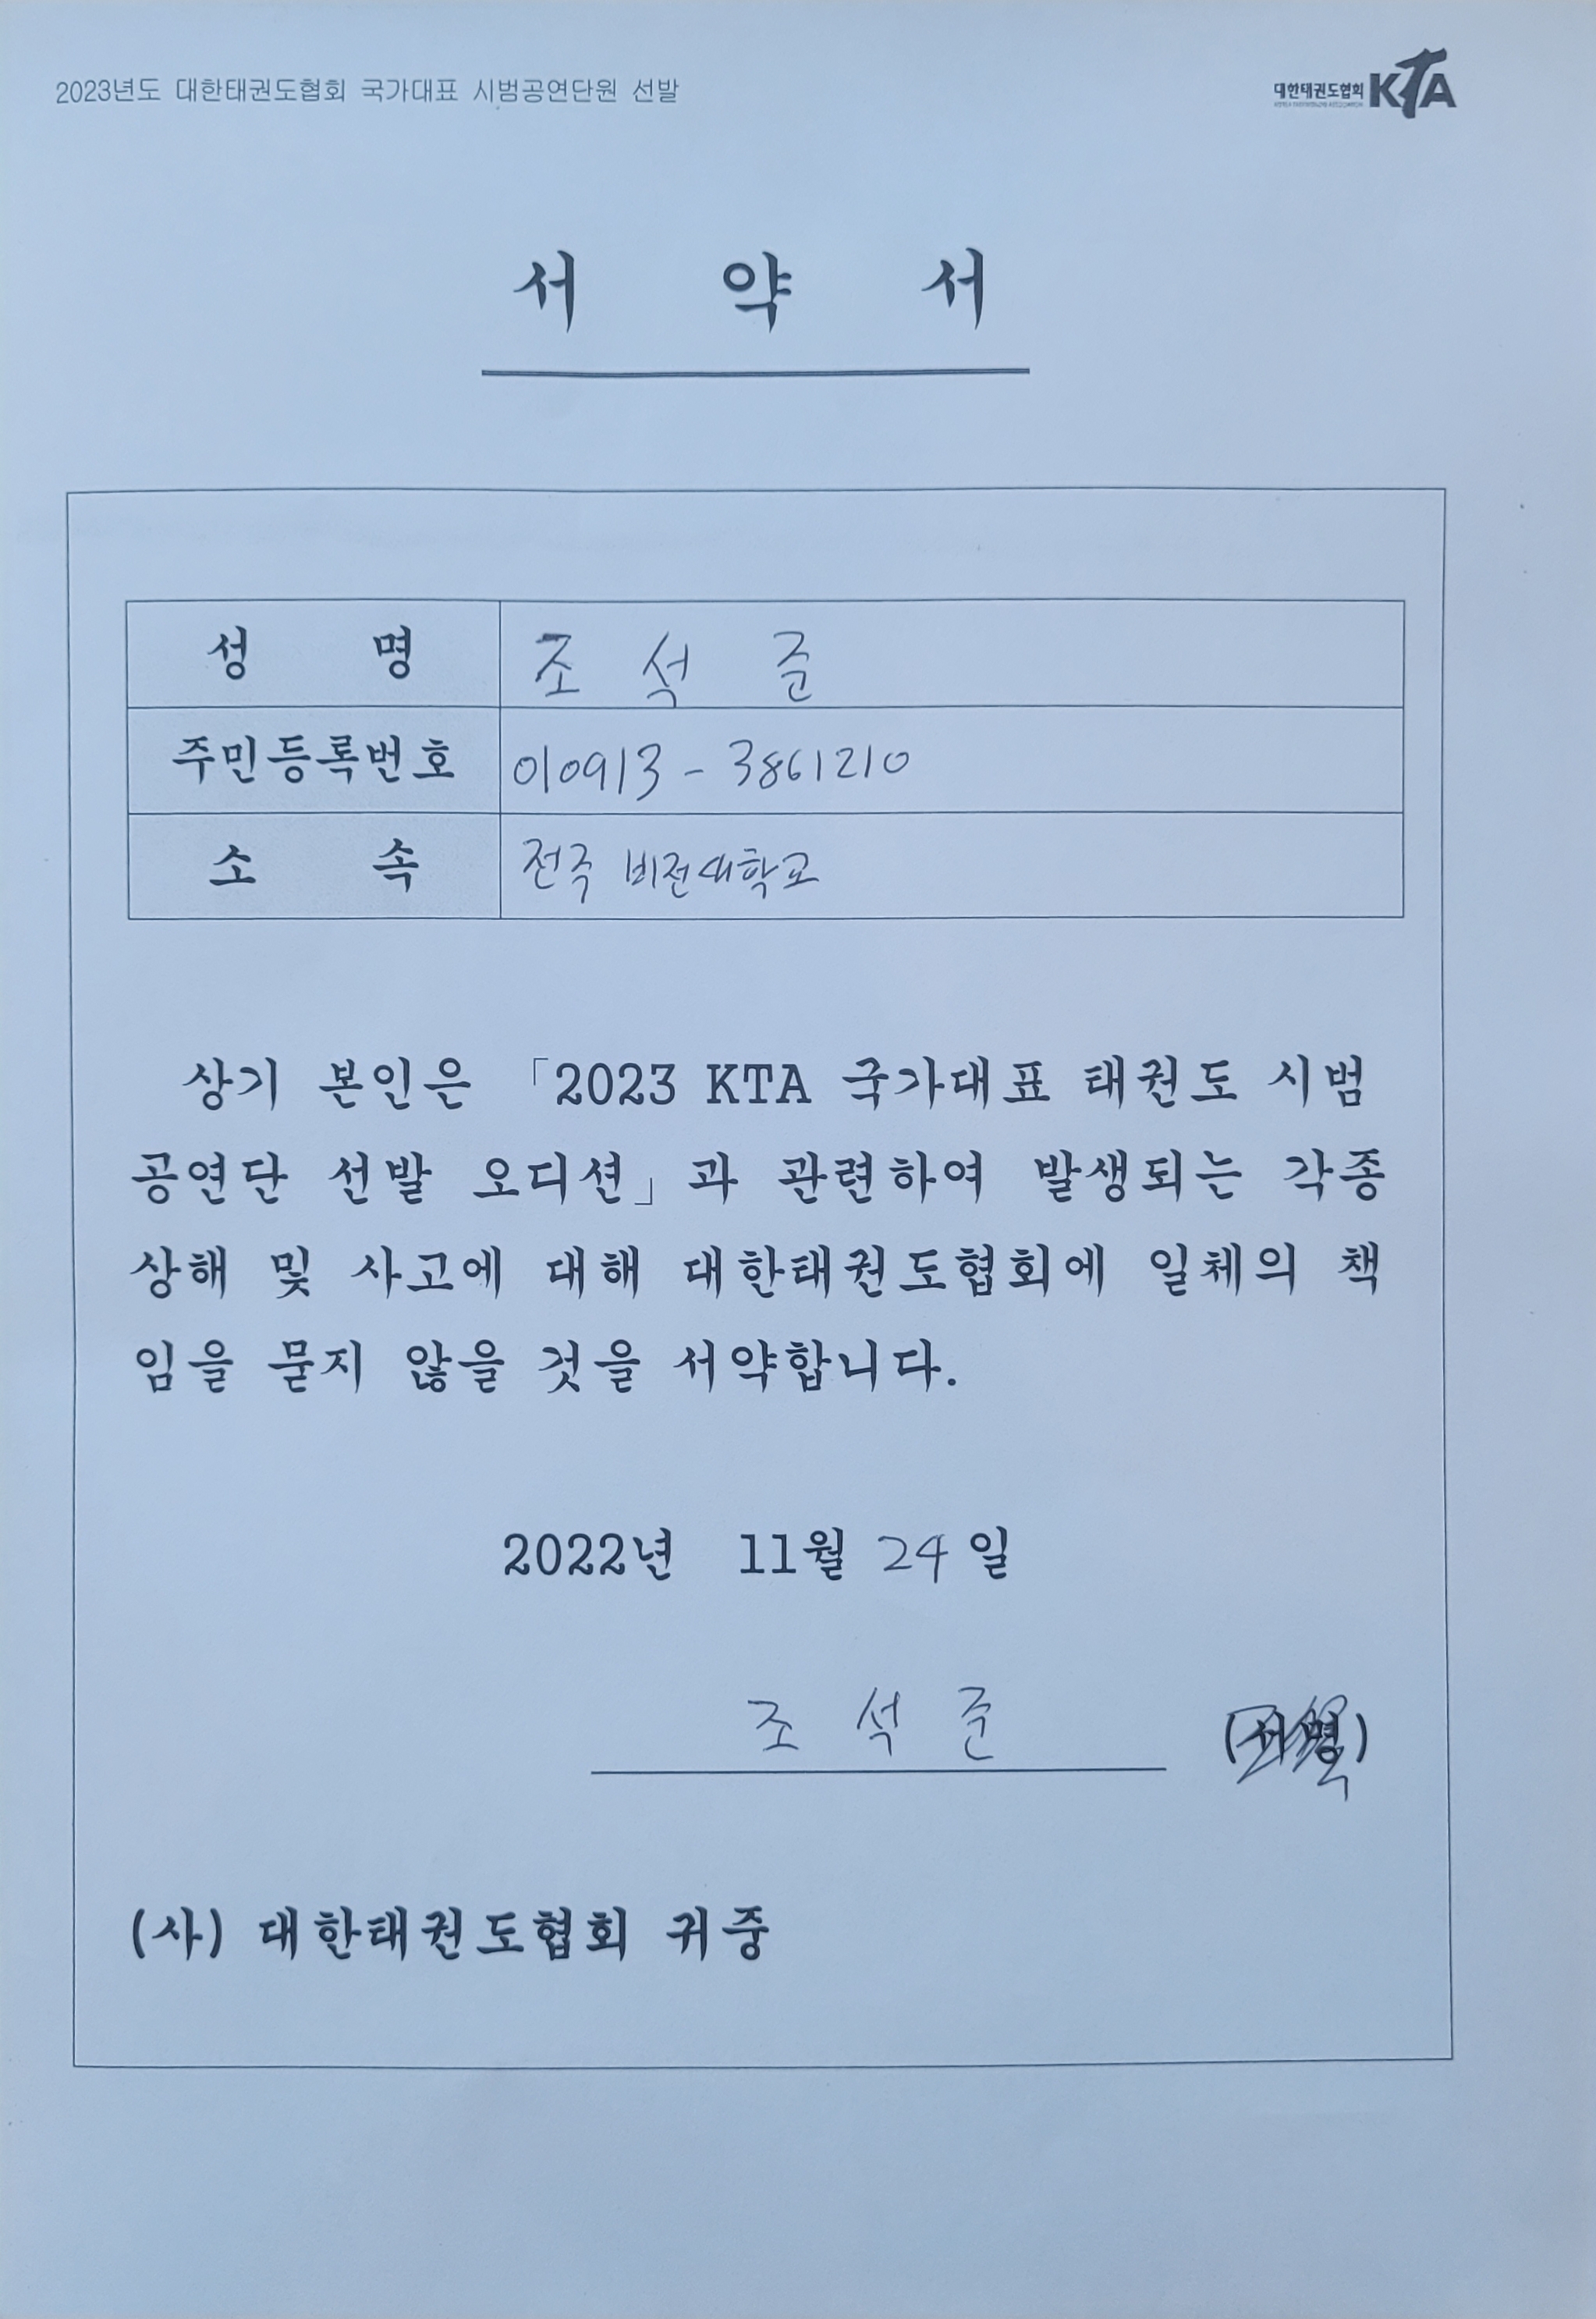 2023년도 대한태권도협회 국가대표 시범공연단원 선발
대한태권도협회 KTA
서 약 서
성 명 조 석 준
주민등록번호 010913 - 3861210
소 속 전주 비전대학교
상기 본인은 「2023 KTA 국가대표 태권도 시범
공연단 선발 오디션」과 관련하여 발생되는 각종
상해 및 사고에 대해 대한태권도협회에 일체의 책
임을 묻지 않을 것을 서약합니다.
2022년 11월 24일
조 석 준 (서명)
(사) 대한태권도협회 귀중